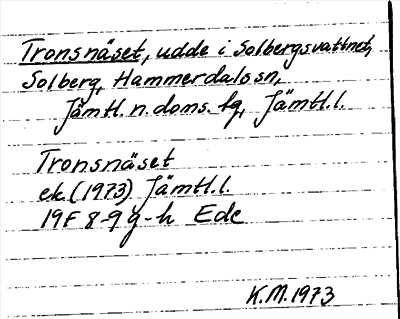 Tronsnäset, udde i Solbergsvattnet,
Solberg, Hammerdals sn,
Jämtl. n. doms. tg, Jämtl. l.
Tronsnäset
ek. (1973) Jämtl. l.
19F 8-9 g-h Ede
K.M. 1973